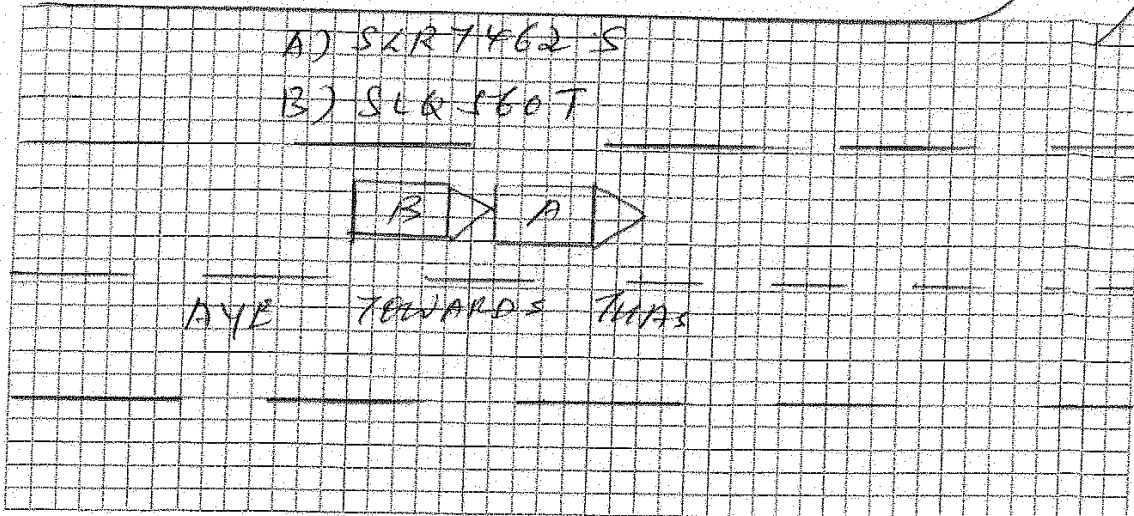 A) SLR7462S
B) SLQ560T
B A
AYE TOWARDS TUAS